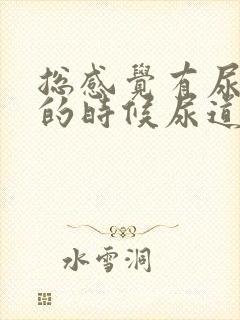 总感覺有尿
的時候尿道
水雪洞